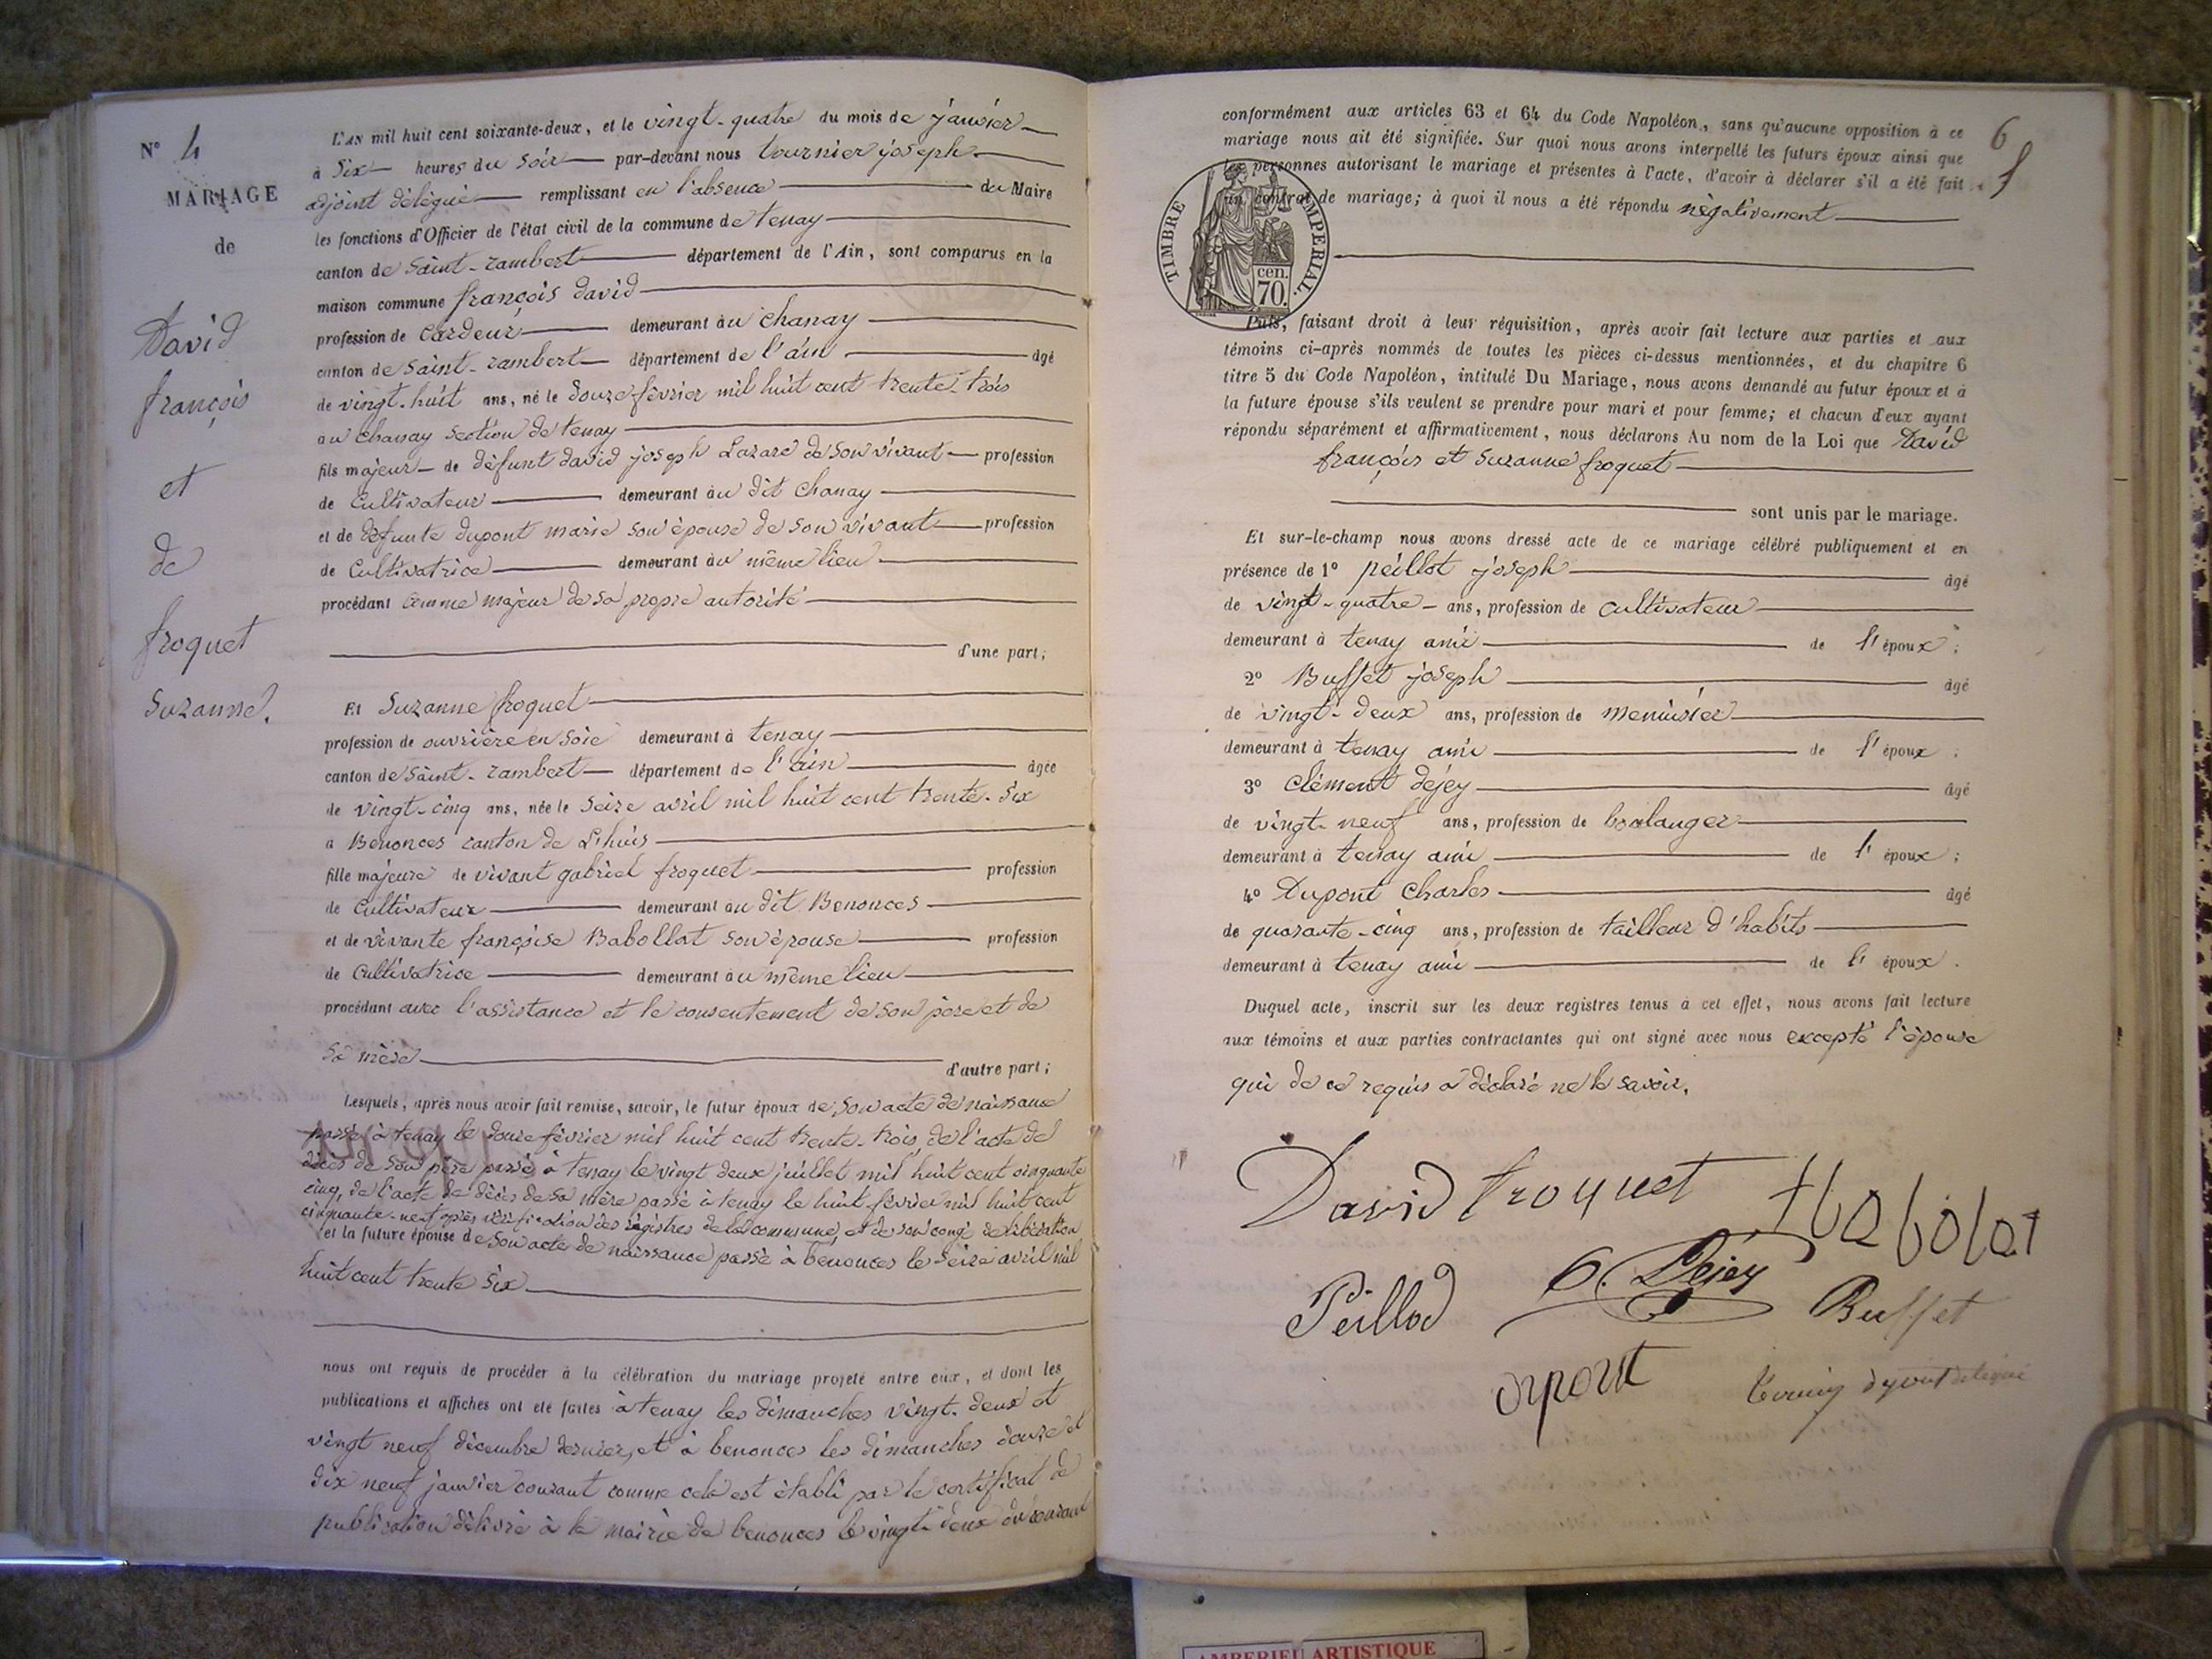 N° 4
MARIAGE
de
David
françois
et
de
froquet
Suzanne.
L'AN mil huit cent soixante-deux, et le vingt-quatre du mois de janvier
à Six heures du Soir par-devant nous tournier joseph
adjoint délégué remplissant en l'absence du Maire
les fonctions d'Officier de l'état civil de la commune de tenay
canton de Saint-rambert département de l'Ain, sont comparus en la
maison commune françois david
profession de Cardeur demeurant au Chanay
canton de Saint-rambert département de l'ain âgé
de vingt-huit ans, né le douze février mil huit cent trente-trois
au chanay Section de tenay
fils majeur de défunt david joseph Lazare de son vivant profession
de Cultivateur demeurant au dit Chanay
et de défunte dupont marie son épouse de son vivant profession
de Cultivatrice demeurant au même lieu
procédant comme majeur de sa propre autorité
d'une part;
Et Suzanne froquet
profession de ouvrière en Soie demeurant à tenay
canton de Saint-rambert département de l'ain âgée
de vingt-cinq ans, née le Seize avril mil huit cent trente-Six
à Benonces canton de Lhuis
fille majeure de vivant gabriel froquet profession
de Cultivateur demeurant au dit Benonces
et de vivante françoise Babollat son épouse profession
de Cultivatrice demeurant au même lieu
procédant avec l'assistance et le consentement de son père et de
Sa mère d'autre part;
Lesquels, après nous avoir fait remise, savoir, le futur époux de Son acte de naissance
passé à tenay le douze février mil huit cent trente-trois, de l'acte de
décès de son père passé à tenay le vingt deux juillet mil huit cent cinquante
cinq, de l'acte de décès de sa mère passé à tenay le huit février mil huit cent
cinquante-neuf après vérification des régistres de la commune, et de son congé de libération
et la future épouse de Son acte de naissance passé à benonces le Seize avril mil
huit cent trente Six
nous ont requis de procéder à la célébration du mariage projeté entre eux, et dont les
publications et affiches ont été faites à tenay les dimanches vingt-deux et
vingt neuf décembre dernier, et à benonces les dimanches douze et
dix neuf janvier courant comme cela est établi par le certificat de
publication délivré à la mairie de benonces le vingt-deux du courant
6
conformément aux articles 63 et 64 du Code Napoléon, sans qu'aucune opposition à ce
mariage nous ait été signifiée. Sur quoi nous avons interpellé les futurs époux ainsi que
les personnes autorisant le mariage et présentes à l'acte, d'avoir à déclarer s'il a été fait
un contrat de mariage; à quoi il nous a été répondu négativement
TIMBRE IMPERIAL.
cen.
70.
Puis, faisant droit à leur réquisition, après avoir fait lecture aux parties et aux
témoins ci-après nommés de toutes les pièces ci-dessus mentionnées, et du chapitre 6
titre 5 du Code Napoléon, intitulé Du Mariage, nous avons demandé au futur époux et à
la future épouse s'ils veulent se prendre pour mari et pour femme; et chacun d'eux ayant
répondu séparément et affirmativement, nous déclarons Au nom de la Loi que David
françois et Suzanne froquet
sont unis par le mariage.
Et sur-le-champ nous avons dressé acte de ce mariage célébré publiquement et en
présence de 1° peillot joseph âgé
de vingt-quatre ans, profession de cultivateur
demeurant à tenay ami de l'époux;
2° Buffet joseph âgé
de vingt-deux ans, profession de menuisier
demeurant à tenay ami de l'époux.
3° Clément déjey âgé
de vingt-neuf ans, profession de boulanger
demeurant à tenay ami de l'époux;
4° Dupont Charles âgé
de quarante-cinq ans, profession de tailleur d'habits
demeurant à tenay ami de l'époux.
Duquel acte, inscrit sur les deux registres tenus à cet effet, nous avons fait lecture
aux témoins et aux parties contractantes qui ont signé avec nous excepté l'épouse
qui de ce requis a déclaré ne le savoir.
David froquet
Peillod C. Déjey Buffet
AMBERIEU ARTISTIQUE